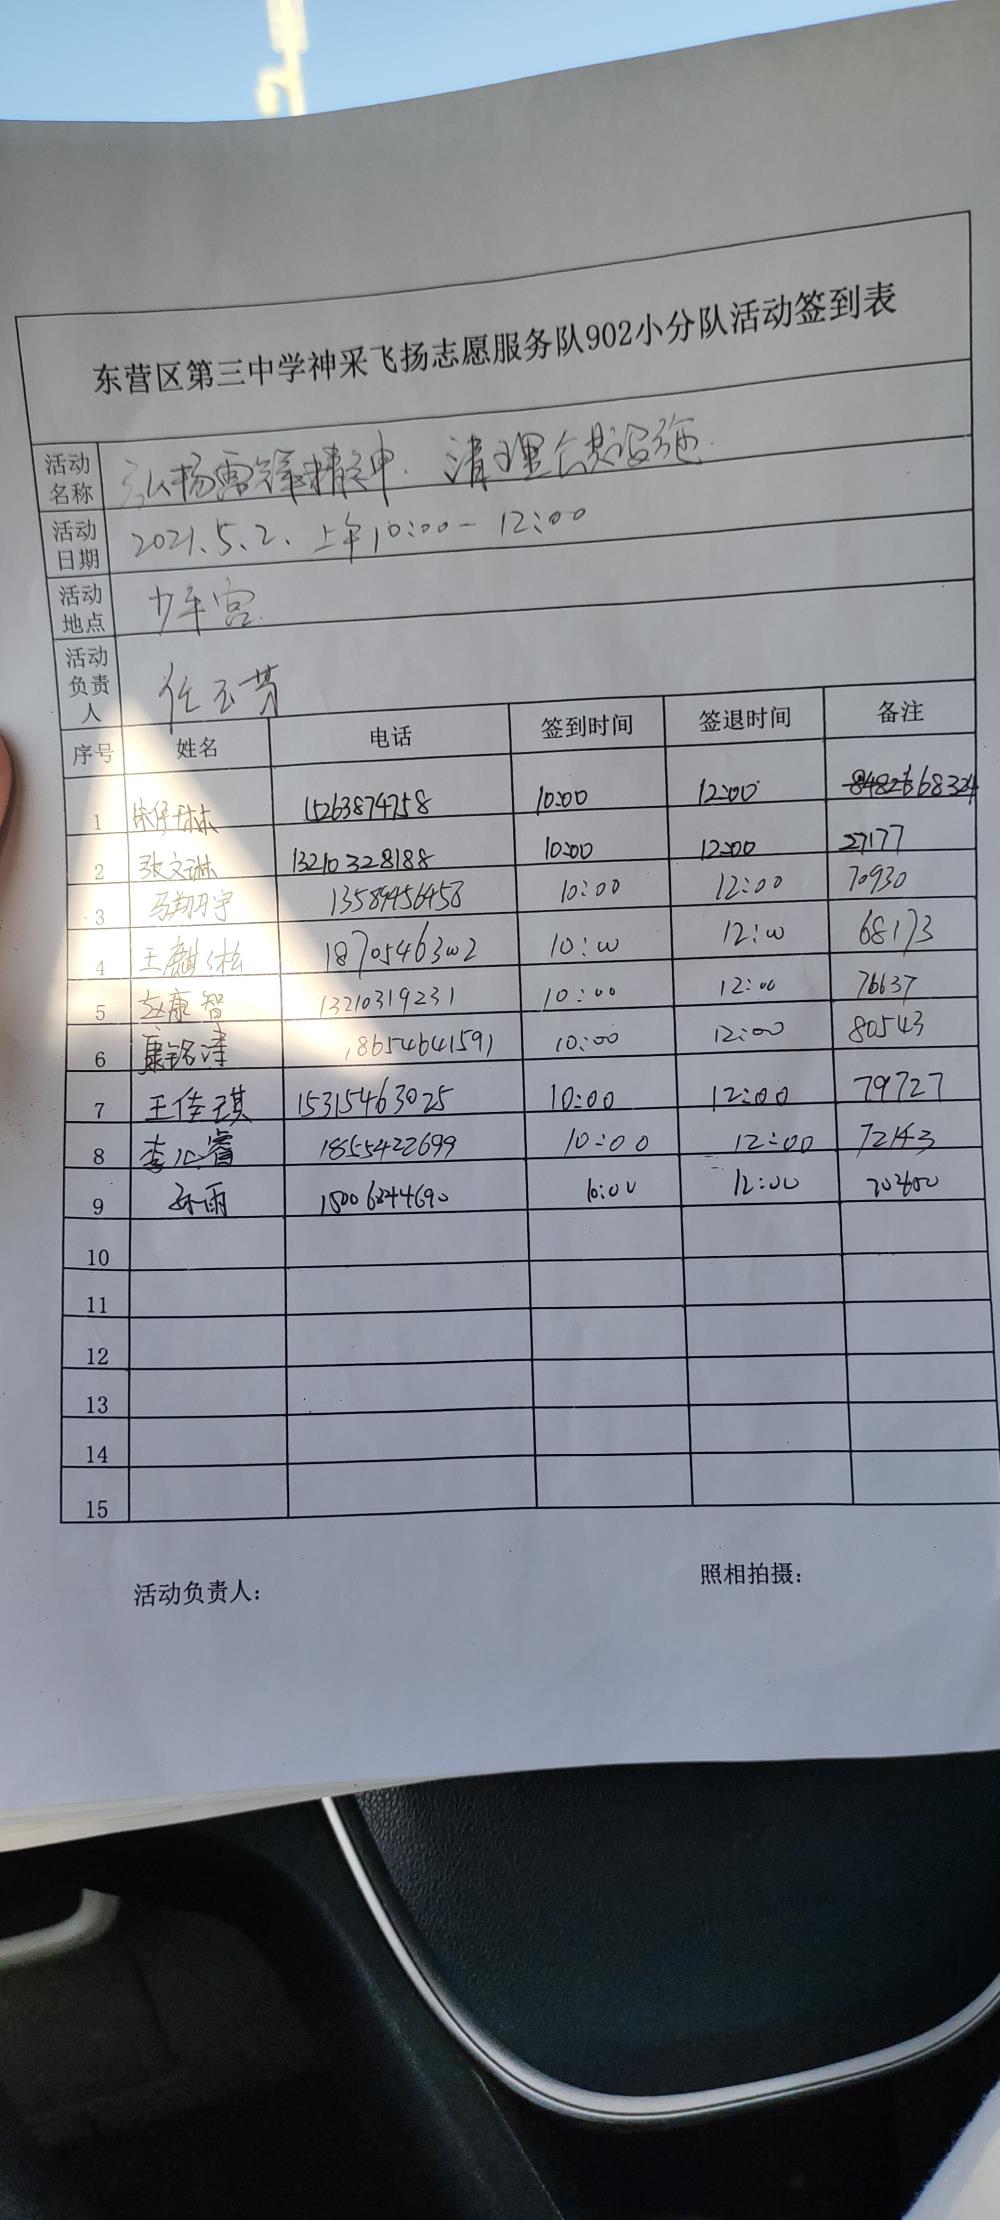 东营区第三中学神采飞扬志愿服务队902小分队活动签到表
活动名称 弘扬雷锋精神. 清理公共设施.
活动日期 2021.5.2. 上午10:00-12:00
活动地点 少年宫
活动负责人 任玉芳
序号 姓名 电话 签到时间 签退时间 备注
1 15263874758 10:00 12:00 68324
2 张文琳 13210328188 10:00 12:00 27177
3 马翔宇 13589956458 10:00 12:00 70930
4 王麒松 18705463002 10:00 12:00 68173
5 赵康智 13210319231 10:00 12:00 76637
6 康铭津 18654641591 10:00 12:00 80543
7 王佳琪 15315463025 10:00 12:00 79727
8 李 睿 1855422699 10:00 12:00 72143
9 孙雨 10:00 12:00
10
11
12
13
14
15
活动负责人： 照相拍摄：